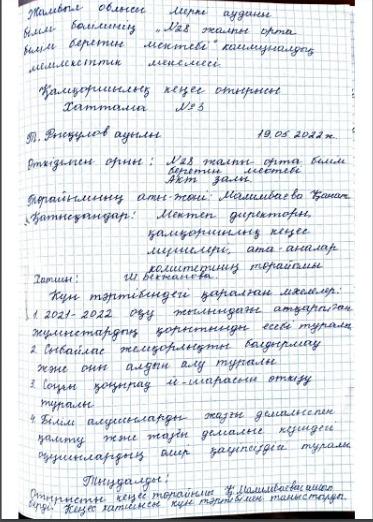 Жамбыл облысы Меркі ауданы
білім бөлімінің "№28 жалпы орта
білім беретін мектебі" коммуналдық
мемлекеттік мекемесі.
Қамқоршылық кеңес отырысы
Хаттама №3
Т. Рысқұлов ауылы 19.05.2022ж.
Өткізілген орны: №28 жалпы орта білім
беретін мектебі
Акт залы.
Төрайымның аты-жөні: Малимбаева Қанат
Қатысқандар: Мектеп директоры,
қамқоршылық кеңес
мүшелері, ата-аналар
комитетінің төрайымы
Хатшы: Ш Бекжанова.
Күн тәртібіндегі қаралған мәселелер:
1. 2021-2022 оқу жылындағы атқарылған
жұмыстардың қорытынды есебі туралы
2. Сыбайлас жемқорлықты болдырмау
және оның алдын алу туралы
3. Соңғы қоңырау іс-шарасын өткізу
туралы
4. Білім алушыларды жазғы демалыспен
қамту және жазғы демалыс кезіндегі
оқушылардың өмір қауіпсіздігі туралы
Тыңдалды:
Отырысты кеңес төрайымы Қ.Малимбаева ашып
берді. Кеңес хатшысы күн тәртібімен таныстырды.